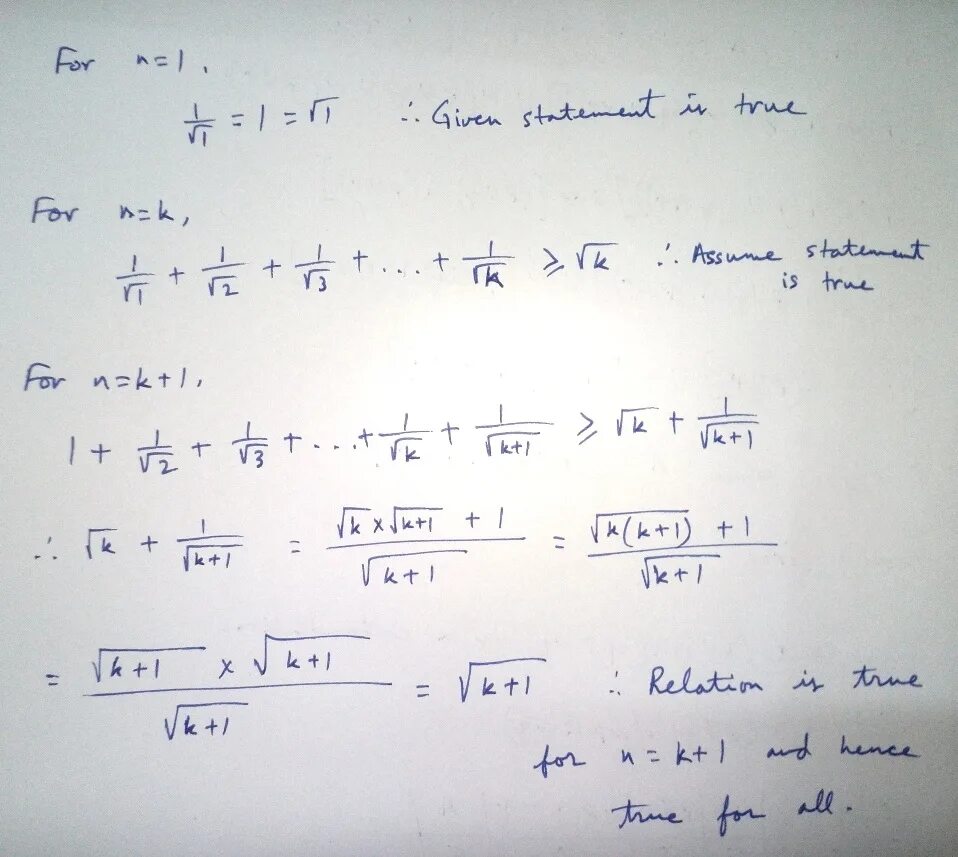 For n=1,
1/√1 = 1 = √1 ∴ Given statement is true
For n=k,
1/√1 + 1/√2 + 1/√3 + ... + 1/√k ⩾ √k ∴ Assume statement
is true
For n=k+1,
1 + 1/√2 + 1/√3 + ... + 1/√k + 1/√(k+1) ⩾ √k + 1/√(k+1)
∴ √k + 1/√(k+1) = (√k × √(k+1) + 1)/√(k+1) = (√(k(k+1)) + 1)/√(k+1)
= (√(k+1) × √(k+1))/√(k+1) = √(k+1) ∴ Relation is true
for n = k+1 and hence
true for all.